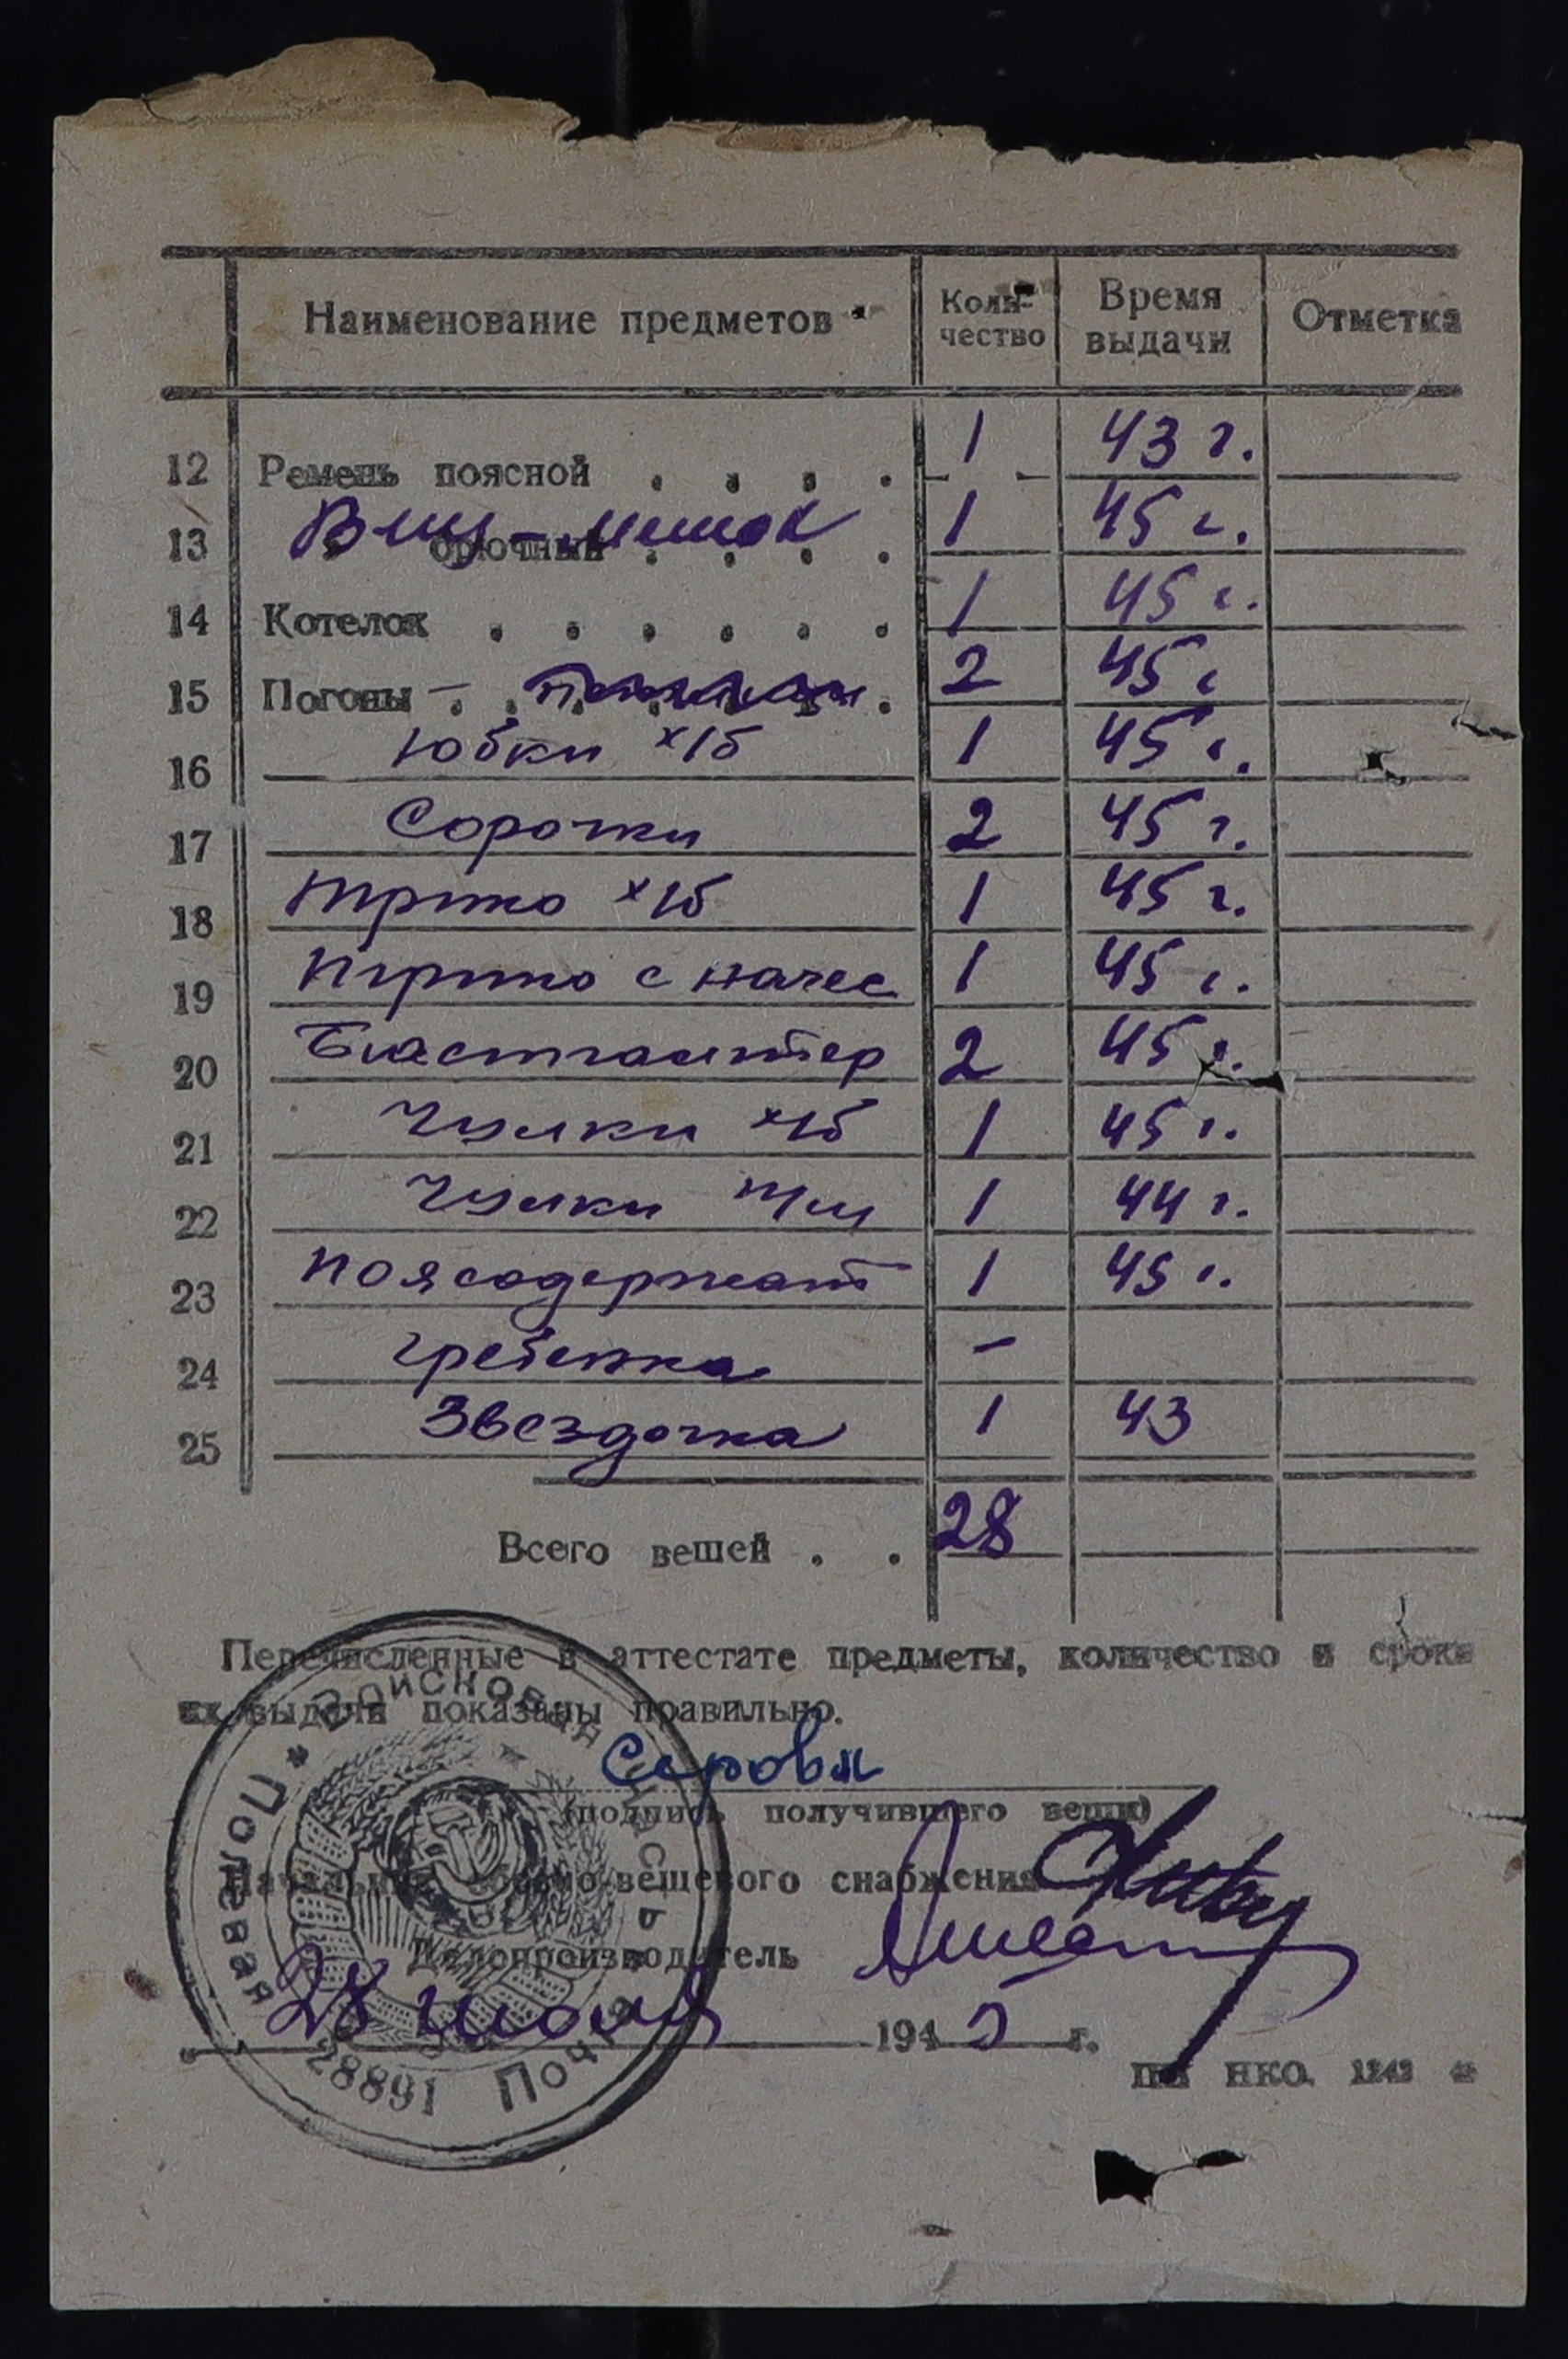 Наименование предметов Коли-чество Время выдачи Отметка
12 Ремень поясной . . . . 1 43 г.
13 Вещ-мешок брючный . . . . 1 45 г.
14 Котелок . . . . . . 1 45 г.
15 Погоны – . . . . . . 2 45 г
16 Юбки х/б 1 45 г.
17 Сорочки 2 45 г.
18 Трико х/б 1 45 г.
19 Трико с начес 1 45 г.
20 Бюстгалтер 2 45 г.
21 Чулки х/б 1 45 г.
22 Чулки п/ш 1 44 г.
23 Поясодержат 1 45 г.
24 гребенка –
25 Звездочка 1 43
Всего вешей . . 28
Перечисленные в аттестате предметы, количество и сроки
их выдачи показаны правильно.
Серова
(подпись получившего вещи)
Начальник обозно-вещевого снабжения
Делопроизводитель
28 июля 1945 г.
НКО. 1243
Войсковая часть * Полевая Почта 28891 *